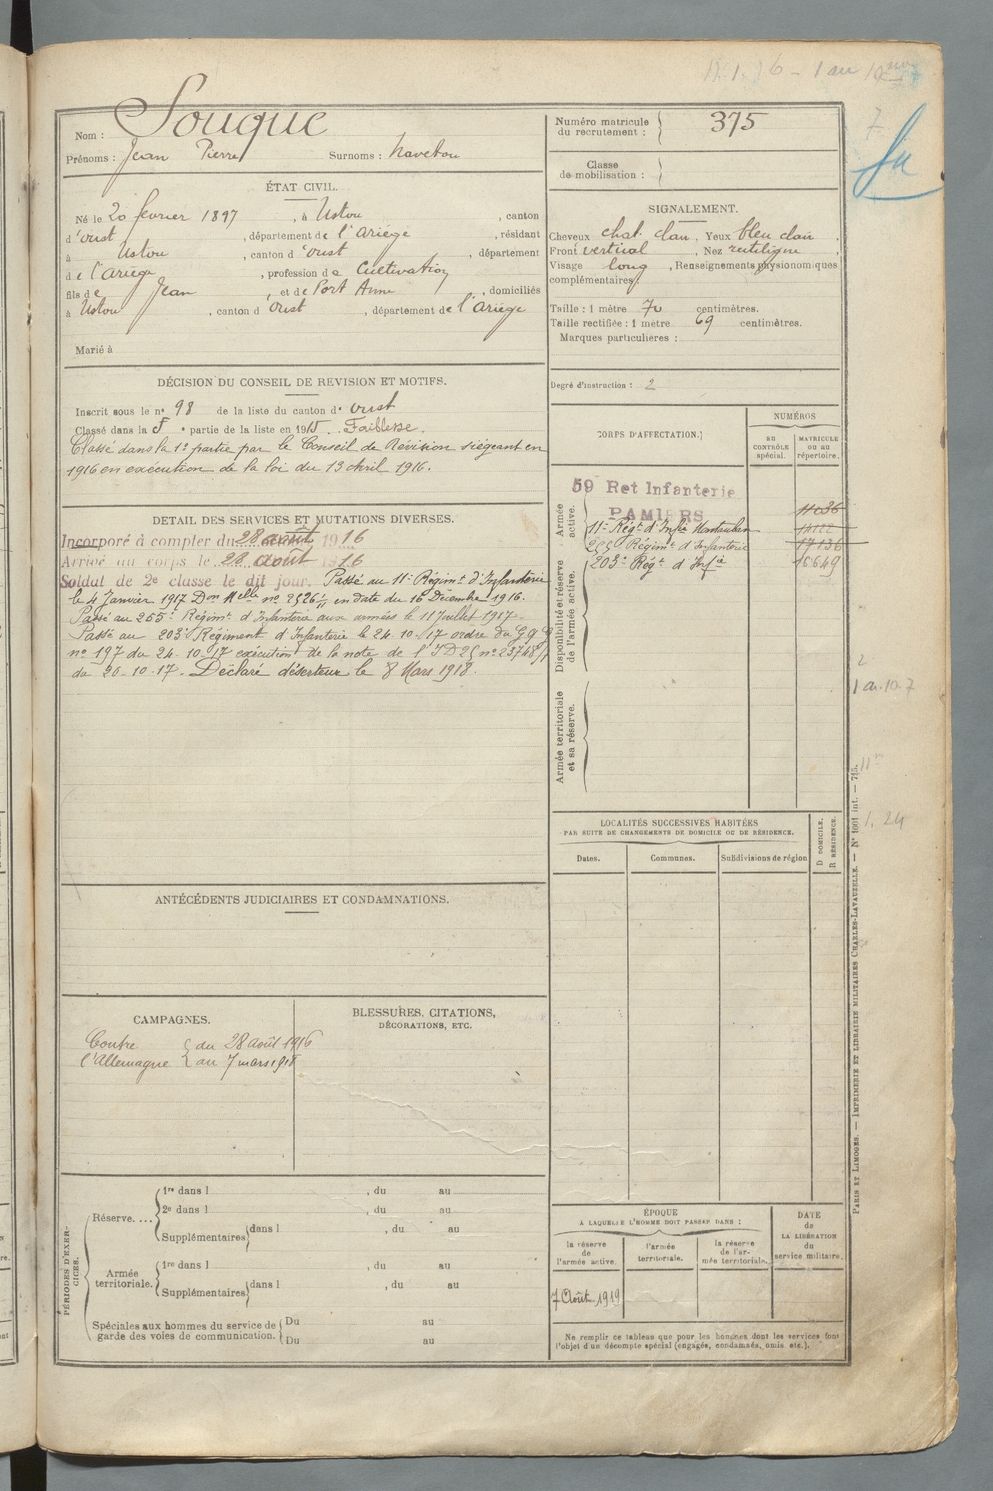 Nom : Souque
Prénoms : Jean Pierre Surnoms :
ÉTAT CIVIL.
Né le 20 février 1897, à Ustou, canton
d'Oust, département de l'Ariège, résidant
à Ustou, canton d'Oust, département
de l'Ariège, profession de Cultivateur
fils de Jean, et de Port Anne, domiciliés
à Ustou, canton d Oust, département de l'Ariège
Marié à
DÉCISION DU CONSEIL DE REVISION ET MOTIFS.
Inscrit sous le n° 98 de la liste du canton d' Oust
Classé dans la 5e partie de la liste en 1915. Faiblesse.
Classé dans la 1e partie par le Conseil de Révision siégeant en
1916 en exécution de la loi du 13 Avril 1916.
DETAIL DES SERVICES ET MUTATIONS DIVERSES.
Incorporé à compter du 28 août 1916
Arrivé au corps le 28 août 1916
Soldat de 2e classe le dit jour. Passé au 11e Régimt d'Infanterie
le 4 Janvier 1917 Don Melle no 2526 1/11 en date du 16 Décembre 1916.
Passé au 255e Régimt d'Infanterie aux armées le 11 Juillet 1917.
Passé au 203e Régiment d'Infanterie le 24-10-17 ordre du G Q G
no 197 du 24-10-17 exécution de la note de l'ID 25 no 23748/1
du 20-10-17. Déclaré déserteur le 8 Mars 1918.
ANTÉCÉDENTS JUDICIAIRES ET CONDAMNATIONS.
CAMPAGNES.
Contre { du 28 août 1916
l'Allemagne { au 7 mars 1918
BLESSURES, CITATIONS,
DÉCORATIONS, ETC.
PÉRIODES D'EXERCICES.
Réserve....
1re dans l , du au
2e dans l , du au
Supplémentaires dans l , du au
Armée territoriale.
1re dans l , du au
Supplémentaires dans l , du au
Spéciales aux hommes du service de
garde des voies de communication.
Du au
Du au
Numéro matricule
du recrutement : 375
Classe
de mobilisation :
SIGNALEMENT.
Cheveux chat. clair, Yeux bleu clair,
Front vertical, Nez rectiligne,
Visage long, Renseignements physionomiques
complémentaires:
Taille : 1 mètre 70 centimètres.
Taille rectifiée : 1 mètre 69 centimètres.
Marques particulières :
Degré d'instruction : 2
CORPS D'AFFECTATION.
NUMÉROS
AU CONTRÔLE spécial.
MATRICULE ou au répertoire.
Armée active.
59 Ret Infanterie
PAMIERS
11e Régt d'Infie Montauban
255e Régimt d'Infanterie 17136
203e Régt d'Infie 16649
Disponibilité et réserve de l'armée active.
Armée territoriale et sa réserve.
LOCALITÉS SUCCESSIVES HABITÉES
PAR SUITE DE CHANGEMENTS DE DOMICILE OU DE RÉSIDENCE.
Dates. Communes. Subdivisions de région
D DOMICILE.
R RÉSIDENCE.
ÉPOQUE
À LAQUELLE L'HOMME DOIT PASSER DANS :
la réserve de l'armée active.
l'armée territoriale.
la réserve de l'armée territoriale.
DATE de LA LIBÉRATION du service militaire.
7 Août 1919
Ne remplir ce tableau que pour les hommes dont les services font
l'objet d'un décompte spécial (engagés, condamnés, omis etc.).
PARIS ET LIMOGES. — IMPRIMERIE ET LIBRAIRIE MILITAIRES CHARLES-LAVAUZELLE. — N° 1001 int. — 715.